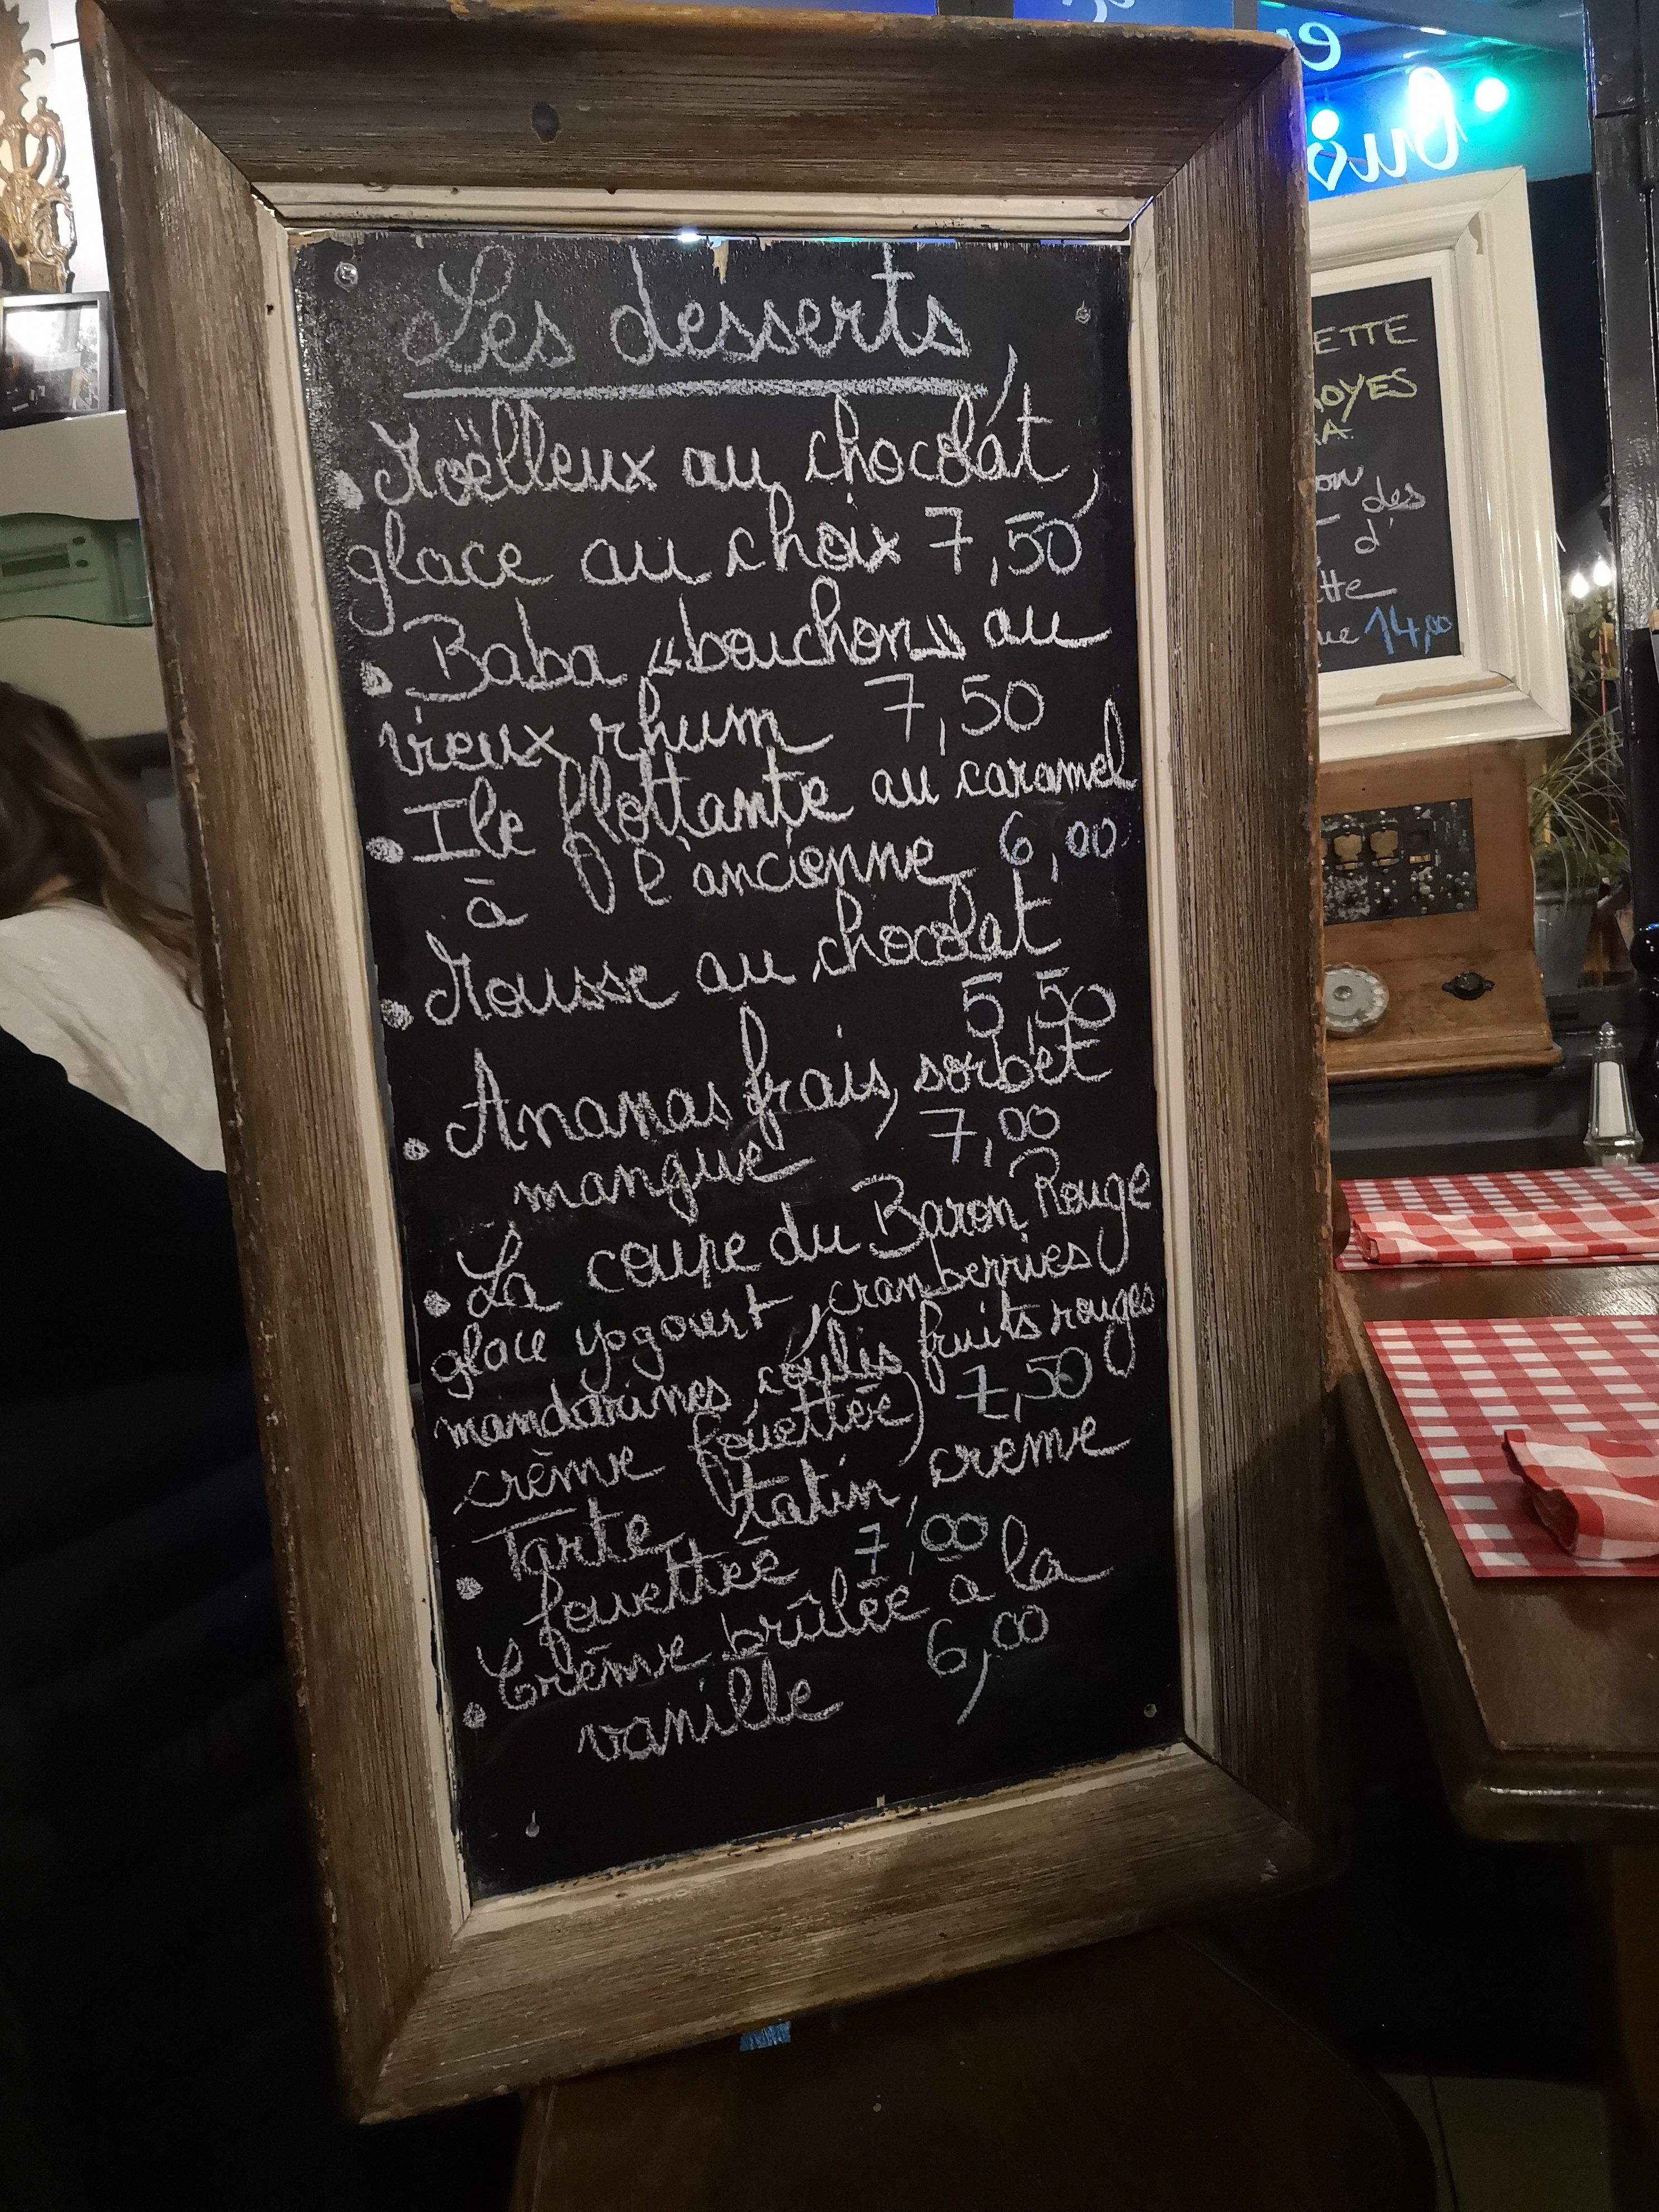 Les desserts
• Moëlleux au chocolat,
glace au choix 7,50
• Baba «bouchon» au
vieux rhum 7,50
• Ile flottante au caramel
à l'ancienne 6,00
• Mousse au chocolat
5,50
• Ananas frais, sorbet
mangue 7,00
• La coupe du Baron Rouge
glace yogourt, cranberries
mandarines, coulis fruits rouges
crème fouettée) 7,50
• Tarte tatin, creme
fouettée 7,00
• Crème brûlée a la
vanille 6,00
ETTE
OYES
des
d'
tte
ue 14,00